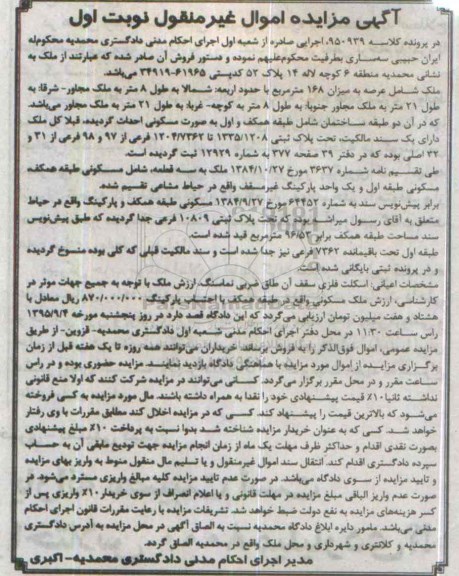 آگهی مزایده اموال غیرمنقول نوبت اول
در پرونده کلاسه ۹۵۰۹۳۹ اجرایی صادره از شعبه اول اجرای احکام مدنی دادگستری محمدیه محکوم‌له
ایران حبیبی به‌طرفیت محکوم‌علیهم نموده و دستور فروش آن صادر شده که عبارتند از ملک به
نشانی محمدیه منطقه ۶ کوچه لاله ۱۴ پلاک ۵۲ کدپستی ۶۱۹۶۵-۳۴۹۱۹ می‌باشد.
ملک شامل عرصه به میزان ۱۶۸ مترمربع با حدود اربعه: شمالا به طول ۸ متر به ملک مجاور- شرقا: به
طول ۲۱ متر به ملک مجاور جنوبا: به طول ۸ متر به کوچه- غربا: به طول ۲۱ متر به ملک مجاور می‌باشد.
که در آن دو طبقه ساختمان شامل طبقه همکف و اول به صورت مسکونی احداث گردیده، قبلا کل ملک
دارای یک سند مالکیت، تحت پلاک ثبتی ۱۳۳۵/۱۲۰۸ تا ۱۲۰۴/۷۳۶۲ فرعی از ۹۷ و ۹۸ فرعی از ۳۱ و
۳۲ اصلی بوده که در دفتر ۳۹ صفحه ۳۷۷ به شماره ۱۲۹۲۹ ثبت گردیده است.
طی تقسیم نامه شماره ۳۶۳۷ مورخ ۱۳۸۴/۱۰/۲۷ ملک به سه قطعه، شامل مسکونی طبقه همکف،
مسکونی طبقه اول و یک واحد پارکینگ غیرمسقف واقع در حیاط مشاعی تقسیم شده.
برابر پیش‌نویس سند به شماره ۶۴۴۵۲ مورخ ۱۳۸۴/۹/۲۷ مسکونی طبقه همکف و پارکینگ واقع در حیاط
متعلق به آقای رسول میراشه بوده که تحت پلاک ثبتی ۱۰۸۰۹ فرعی جدا گردیده که طبق پیش‌نویس
سند مساحت طبقه همکف برابر ۹۶/۵۳ مترمربع قید شده است.
طبقه اول تحت باقیمانده ۷۳۶۲ فرعی نیز جدا شده است و سند مالکیت قبلی که کلی بوده منسوخ گردیده
و در پرونده ثبتی بایگانی شده است.
مشخصات اعیانی: اسکلت فلزی سقف آن طاق ضربی نماسنگ، ارزش ملک با توجه به جمیع جهات موثر در
کارشناسی، ارزش ملک مسکونی واقع در طبقه همکف با احتساب پارکینگ ۸۷۰/۰۰۰/۰۰۰ ریال معادل با
هشتاد و هفت میلیون تومان ارزیابی می‌گردد که این دادگاه قصد دارد در روز پنجشنبه مورخه ۱۳۹۵/۹/۴
راس ساعت ۱۱/۳۰ در محل دفتر اجرای احکام مدنی شعبه اول دادگستری محمدیه- قزوین- از طریق
مزایده عمومی، اموال فوق‌الذکر را به فروش برساند. خریداران می‌توانند همه روزه تا یک هفته قبل از زمان
برگزاری مزایده از اموال مورد مزایده با هماهنگی دادگاه بازدید نمایند. مزایده حضوری بوده و در راس
ساعت مقرر و در محل مقرر برگزار می‌گردد. کسانی می‌توانند در مزایده شرکت کنند که اولا منع قانونی
نداشته ثانیا ۱۰٪ قیمت پیشنهادی خود را نقدا به همراه داشته باشند. مال مورد مزایده به کسی فروخته
می‌شود که بالاترین قیمت را پیشنهاد کند. کسی که در مزایده اخلال کند مطابق مقررات با وی رفتار
خواهد شد. کسی که به عنوان خریدار مزایده شناخته شد بدوا نسبت به پرداخت ۱۰٪ مبلغ پیشنهادی
بصورت نقدی اقدام و حداکثر ظرف مهلت یک ماه از زمان انجام مزایده جهت تودیع مابقی آن به حساب
سپرده دادگستری اقدام کند. انتقال سند اموال غیرمنقول و یا تسلیم مال منقول منوط به واریز بهای مزایده
و تایید مزایده از سوی دادگاه می‌باشد. در صورت عدم تایید مزایده کلیه مبالغ واریزی مسترد می‌شود در
صورت عدم واریز الباقی مبلغ مزایده در مهلت قانونی و یا اعلام انصراف از سوی خریدار ۱۰٪ واریزی پس از
کسر هزینه‌های مزایده به نفع دولت ضبط خواهد شد. تشریفات مزایده با رعایت مقررات قانون اجرای احکام
مدنی می‌باشد. مامور دایره ابلاغ دادگاه محمدیه نسبت به الصاق آگهی در محل مزایده به آدرس دادگستری
محمدیه و کلانتری و شهرداری و محل ملک واقع در محمدیه الصاق گردد.
مدیر اجرای احکام مدنی دادگستری محمدیه- اکبری